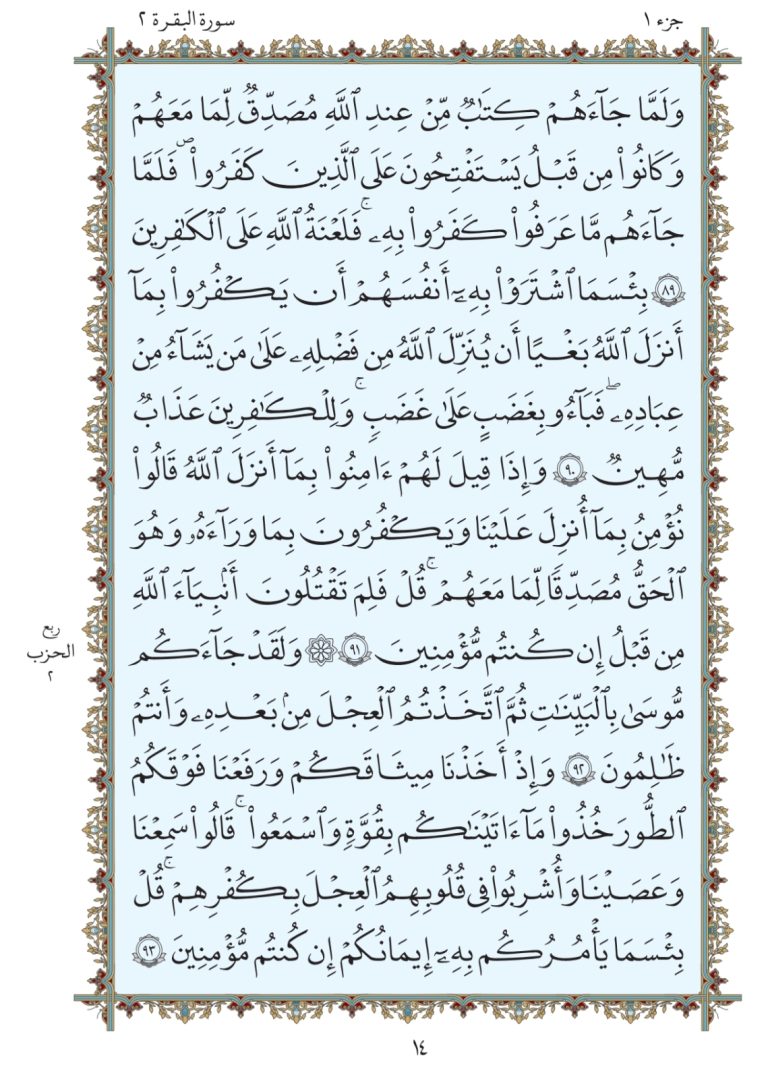 جزء ١
سورة البقرة ٢
وَلَمَّا جَآءَهُمْ كِتَٰبٌ مِّنْ عِندِ ٱللَّهِ مُصَدِّقٌ لِّمَا مَعَهُمْ
وَكَانُوا۟ مِن قَبْلُ يَسْتَفْتِحُونَ عَلَى ٱلَّذِينَ كَفَرُوا۟ ۖ فَلَمَّا
جَآءَهُم مَّا عَرَفُوا۟ كَفَرُوا۟ بِهِۦ ۚ فَلَعْنَةُ ٱللَّهِ عَلَى ٱلْكَٰفِرِينَ
٨٩ بِئْسَمَا ٱشْتَرَوْا۟ بِهِۦٓ أَنفُسَهُمْ أَن يَكْفُرُوا۟ بِمَآ
أَنزَلَ ٱللَّهُ بَغْيًا أَن يُنَزِّلَ ٱللَّهُ مِن فَضْلِهِۦ عَلَىٰ مَن يَشَآءُ مِنْ
عِبَادِهِۦ ۖ فَبَآءُو بِغَضَبٍ عَلَىٰ غَضَبٍ ۚ وَلِلْكَٰفِرِينَ عَذَابٌ
مُّهِينٌ ٩٠ وَإِذَا قِيلَ لَهُمْ ءَامِنُوا۟ بِمَآ أَنزَلَ ٱللَّهُ قَالُوا۟
نُؤْمِنُ بِمَآ أُنزِلَ عَلَيْنَا وَيَكْفُرُونَ بِمَا وَرَآءَهُۥ وَهُوَ
ٱلْحَقُّ مُصَدِّقًا لِّمَا مَعَهُمْ ۗ قُلْ فَلِمَ تَقْتُلُونَ أَنۢبِيَآءَ ٱللَّهِ
مِن قَبْلُ إِن كُنتُم مُّؤْمِنِينَ ٩١ ۞ وَلَقَدْ جَآءَكُم
ربع
الحزب
٢
مُّوسَىٰ بِٱلْبَيِّنَٰتِ ثُمَّ ٱتَّخَذْتُمُ ٱلْعِجْلَ مِنۢ بَعْدِهِۦ وَأَنتُمْ
ظَٰلِمُونَ ٩٢ وَإِذْ أَخَذْنَا مِيثَٰقَكُمْ وَرَفَعْنَا فَوْقَكُمُ
ٱلطُّورَ خُذُوا۟ مَآ ءَاتَيْنَٰكُم بِقُوَّةٍ وَٱسْمَعُوا۟ ۖ قَالُوا۟ سَمِعْنَا
وَعَصَيْنَا وَأُشْرِبُوا۟ فِى قُلُوبِهِمُ ٱلْعِجْلَ بِكُفْرِهِمْ ۚ قُلْ
بِئْسَمَا يَأْمُرُكُم بِهِۦٓ إِيمَٰنُكُمْ إِن كُنتُم مُّؤْمِنِينَ ٩٣
١٤